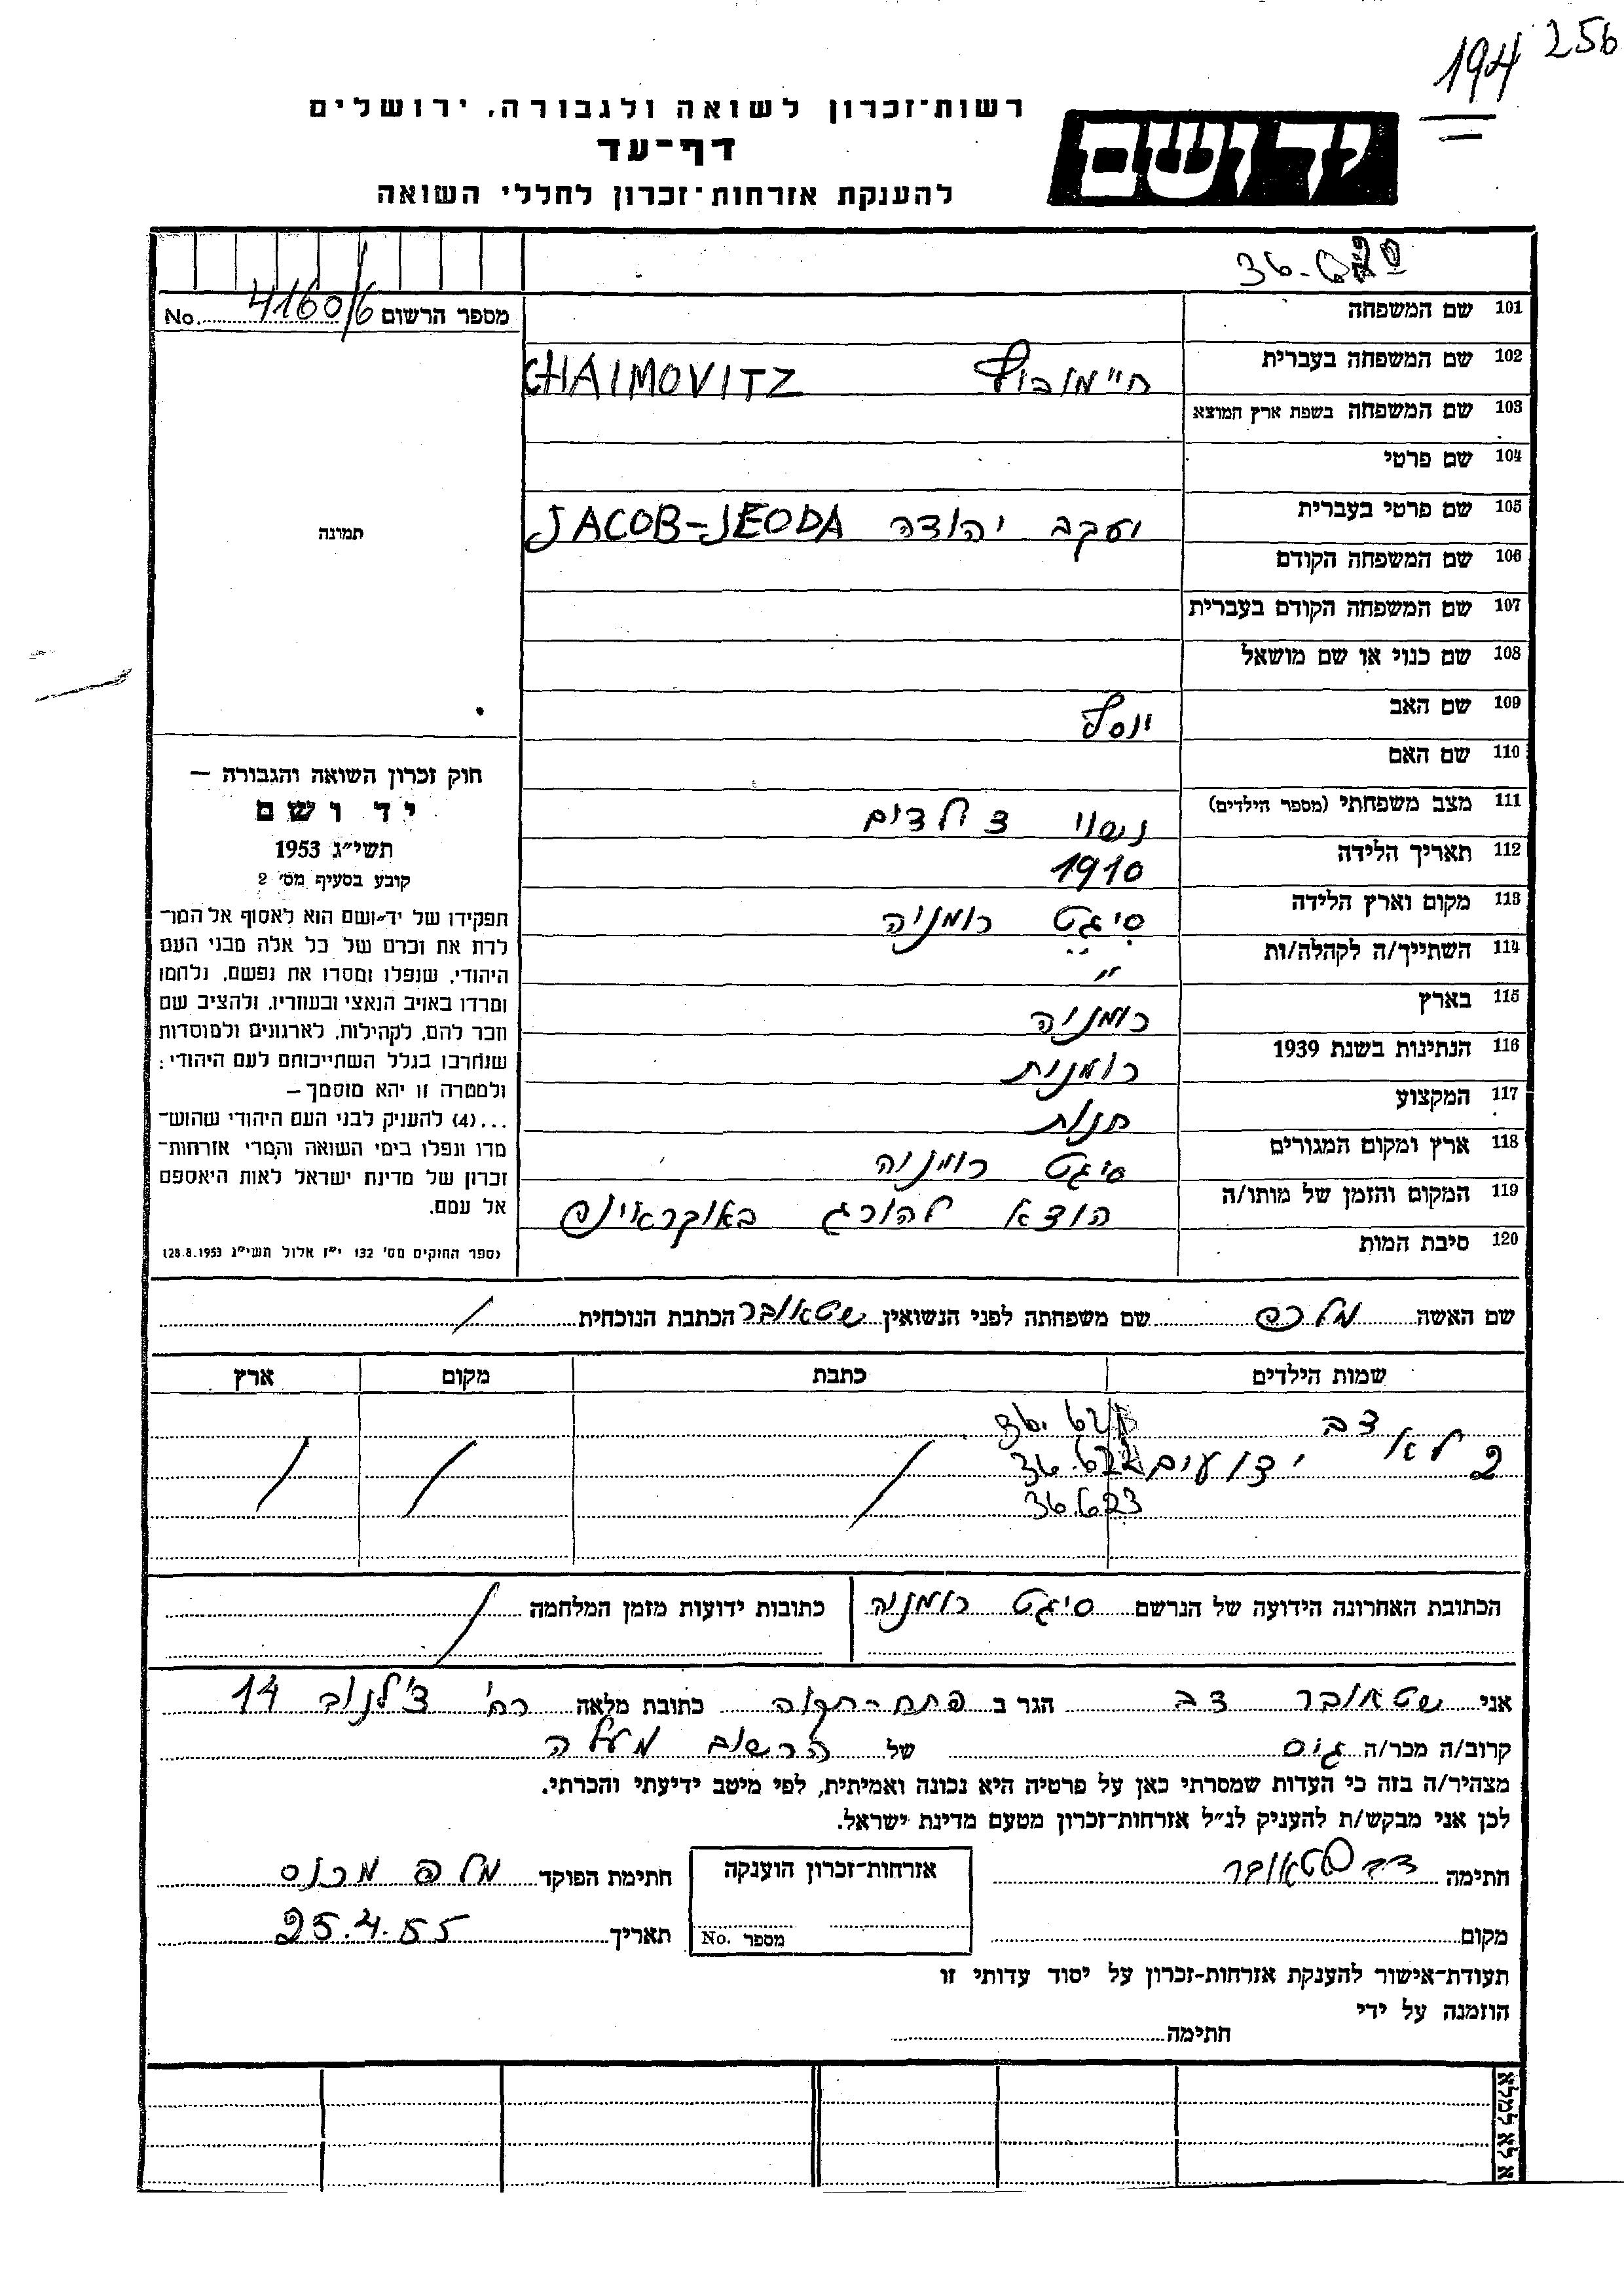 194 256
רשות-זכרון לשואה ולגבורה, ירושלים
דף-עד
להענקת אזרחות-זכרון לחללי השואה
יד ושם
מספר הרשום 4160/6 No.
תמונה
101 שם המשפחה
102 שם המשפחה בעברית חיימוביץ CHAIMOVITZ
103 שם המשפחה בשפת ארץ המוצא
104 שם פרטי
105 שם פרטי בעברית יעקב יהודה JACOB-JEODA
106 שם המשפחה הקודם
107 שם המשפחה הקודם בעברית
108 שם כנוי או שם מושאל
109 שם האב יוסף
110 שם האם
111 מצב משפחתי (מספר הילדים) נשוי 3 ילדים
112 תאריך הלידה 1910
113 מקום וארץ הלידה סיגט רומניה
114 השתייך/ה לקהלה/ות "
115 בארץ רומניה
116 הנתינות בשנת 1939 רומנית
117 המקצוע חנות
118 ארץ ומקום המגורים סיגט רומניה
119 המקום והזמן של מותו/ה הוצא להורג באוקראינה
120 סיבת המות
חוק זכרון השואה והגבורה —
יד ושם
תשי"ג 1953
קובע בסעיף מס' 2
תפקידו של יד-ושם הוא לאסוף אל המו־
לדת את זכרם של כל אלה מבני העם
היהודי, שנפלו ומסרו את נפשם, נלחמו
ומרדו באויב הנאצי ובעוזריו, ולהציב שם
וזכר להם, לקהילות, לארגונים ולמוסדות
שנחרבו בגלל השתייכותם לעם היהודי:
ולמטרה זו יהא מוסמך —
...(4) להעניק לבני העם היהודי שהוש־
מדו ונפלו בימי השואה והמרי אזרחות־
זכרון של מדינת ישראל לאות היאספם
אל עמם.
(ספר החוקים מס' 132 י"ז אלול תשי"ג 28.8.1953)
שם האשה מלכה שם משפחתה לפני הנשואין שטאובר הכתבת הנוכחית /
שמות הילדים כתבת מקום ארץ
דב
2 לא ידועים
36.622
36.623
הכתובת האחרונה הידועה של הנרשם סיגט רומניה כתובות ידועות מזמן המלחמה /
אני שטאובר דב הגר ב פתח-תקוה כתובת מלאה רח' צ'לנוב 14
קרוב/ה מכר/ה גיס של הרשום מעלה
מצהיר/ה בזה כי העדות שמסרתי כאן על פרטיה היא נכונה ואמיתית, לפי מיטב ידיעתי והכרתי.
לכן אני מבקש/ת להעניק לנ"ל אזרחות-זכרון מטעם מדינת ישראל.
חתימה דב שטאובר אזרחות-זכרון הוענקה חתימת הפוקד
מקום מספר No. תאריך 25.4.55
תעודת-אישור להענקת אזרחות-זכרון על יסוד עדותי זו
הוזמנה על ידי
חתימה
נא לא למלא